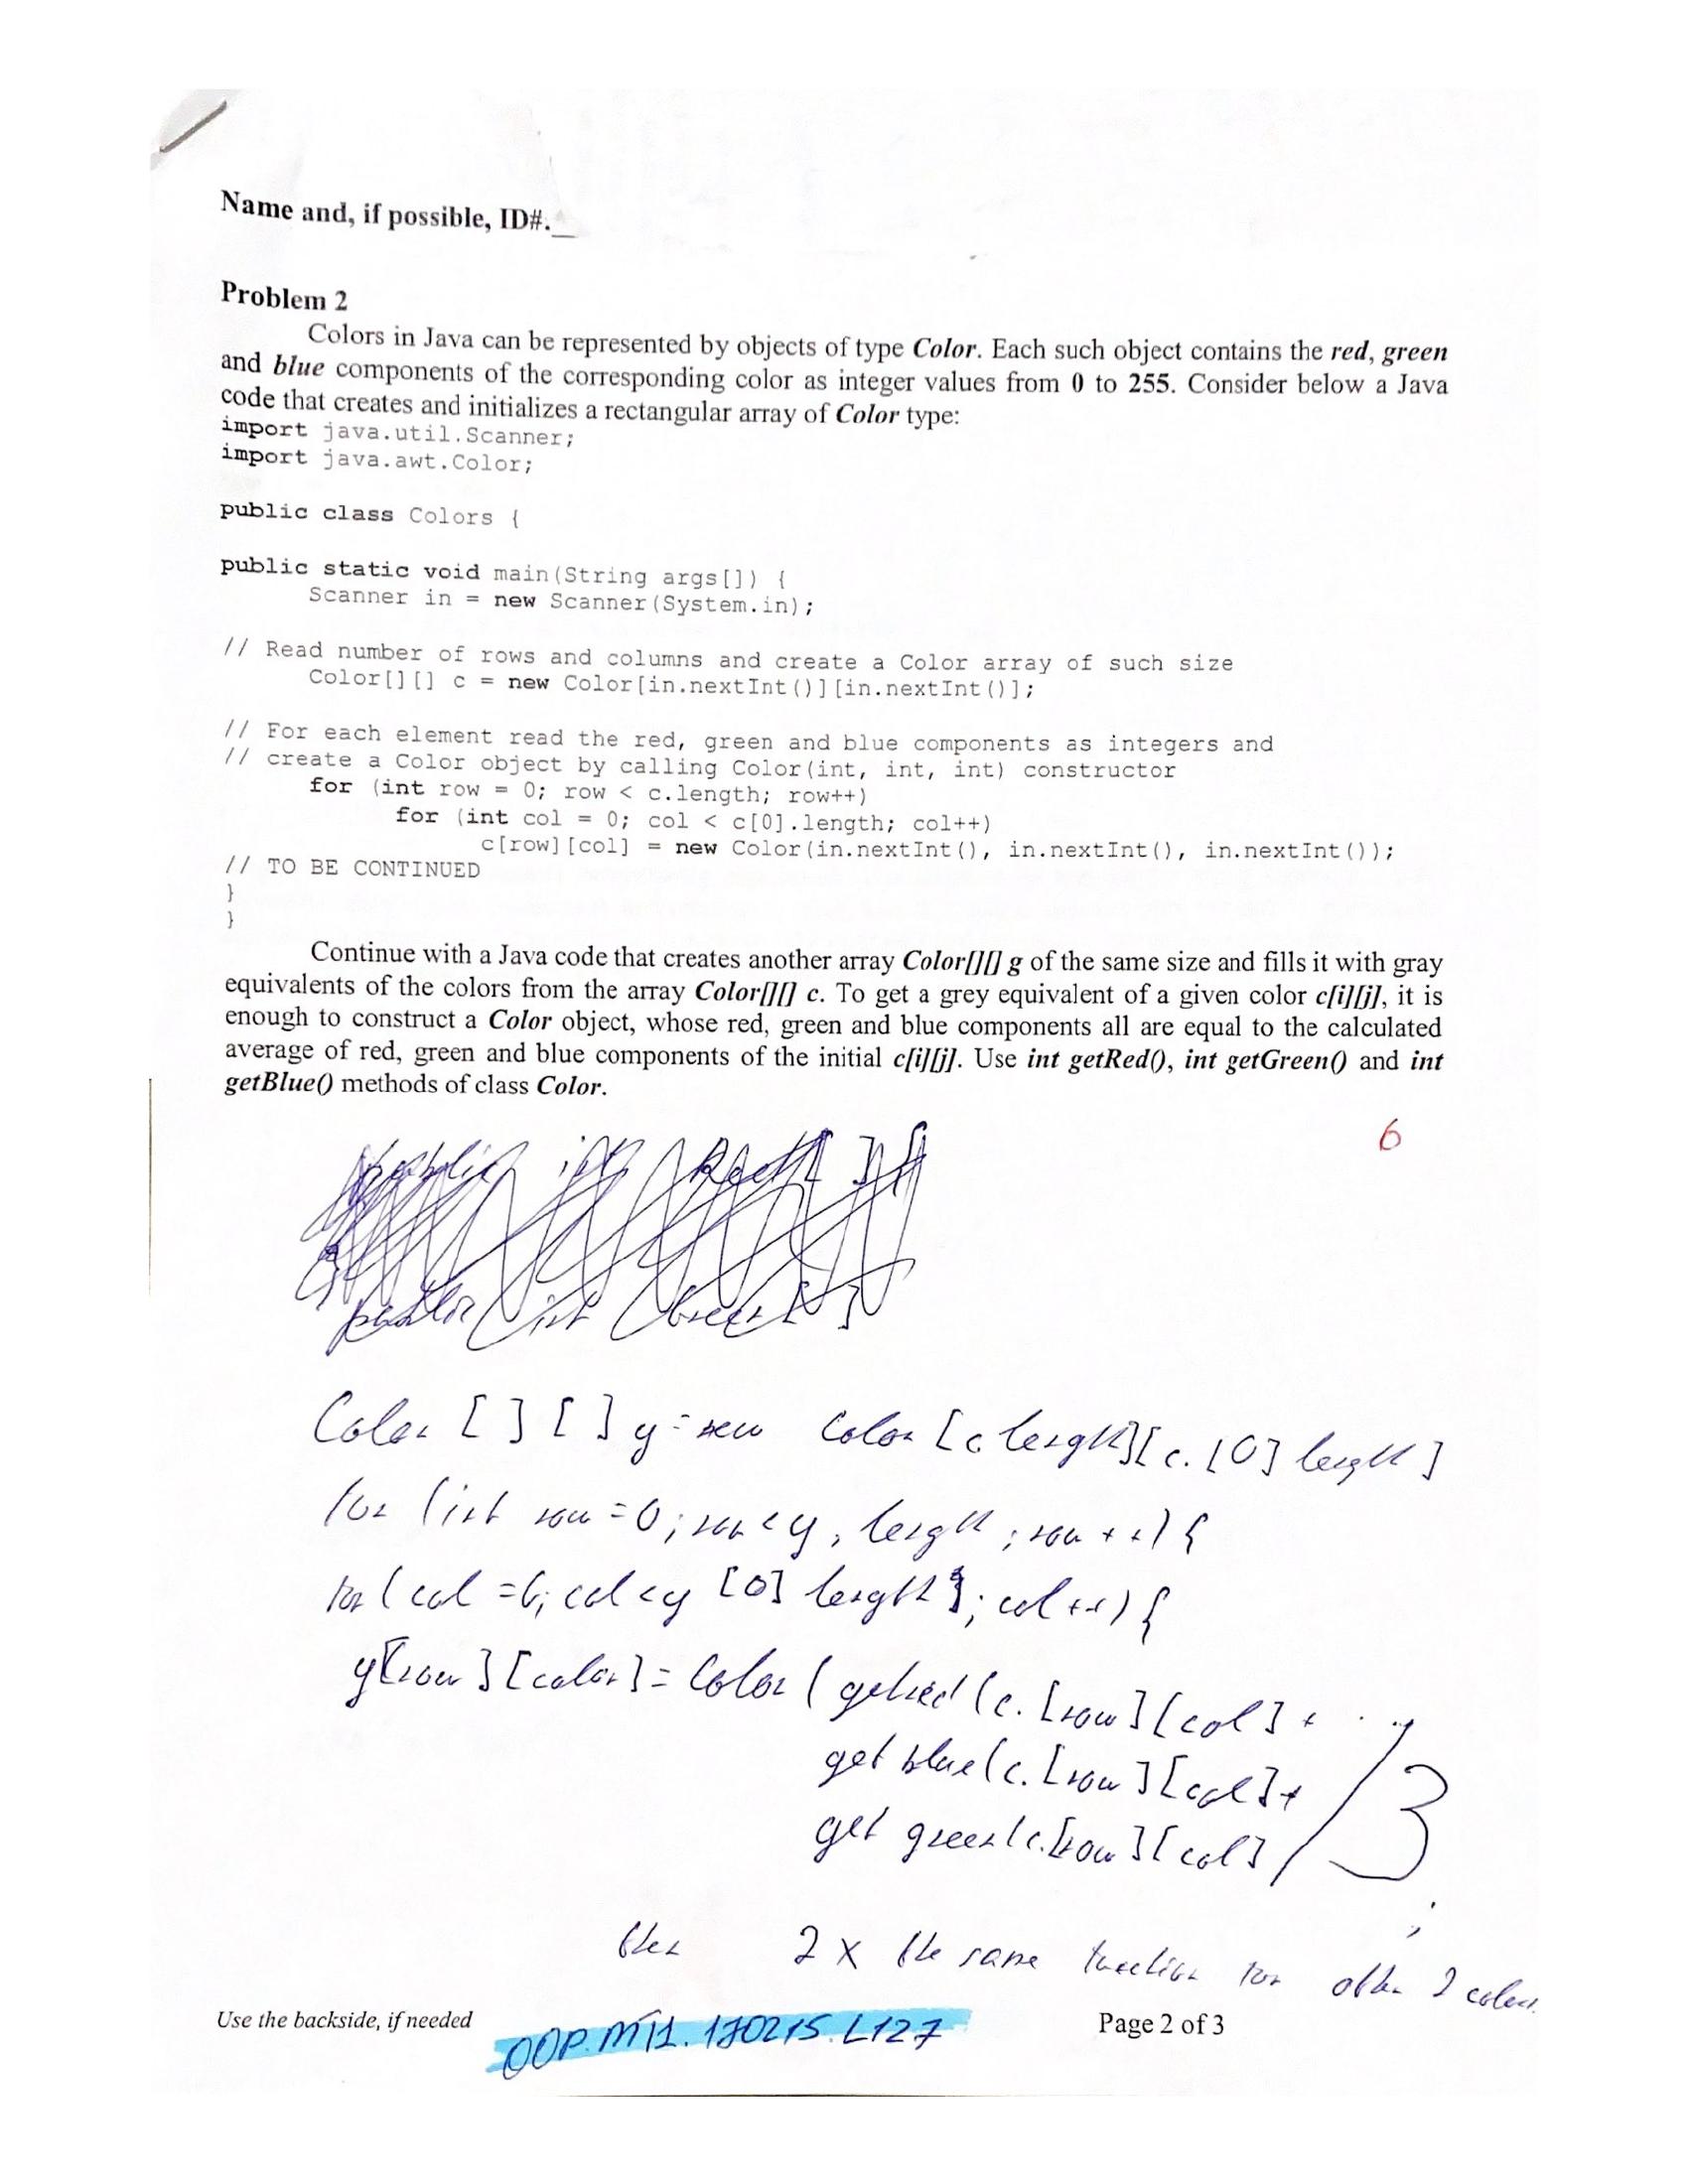 Name and, if possible, ID#._
Problem 2
Colors in Java can be represented by objects of type Color. Each such object contains the red, green
and blue components of the corresponding color as integer values from 0 to 255. Consider below a Java
code that creates and initializes a rectangular array of Color type:
import java.util.Scanner;
import java.awt.Color;
public class Colors {
public static void main(String args[]) {
Scanner in = new Scanner(System.in);
// Read number of rows and columns and create a Color array of such size
Color[][] c = new Color[in.nextInt()][in.nextInt()];
// For each element read the red, green and blue components as integers and
// create a Color object by calling Color(int, int, int) constructor
for (int row = 0; row < c.length; row++)
for (int col = 0; col < c[0].length; col++)
c[row][col] = new Color(in.nextInt(), in.nextInt(), in.nextInt());
// TO BE CONTINUED
}
}
Continue with a Java code that creates another array Color[][] g of the same size and fills it with gray
equivalents of the colors from the array Color[][] c. To get a grey equivalent of a given color c[i][j], it is
enough to construct a Color object, whose red, green and blue components all are equal to the calculated
average of red, green and blue components of the initial c[i][j]. Use int getRed(), int getGreen() and int
getBlue() methods of class Color.
6
Color [ ] [ ] y = new Color [c length][c. [0] length]
for (int row = 0; row < y, length ; row ++) {
for ( col = 0; col < y [0] length ; col ++) {
y[row][color] = Color ( getred (c. [row][col] +
get blue (c. [row][col] +
get green (c. [row][col] / 3
;
then 2 x the same function for other 2 colors.
Use the backside, if needed
OOP.MT1.170215.L127
Page 2 of 3